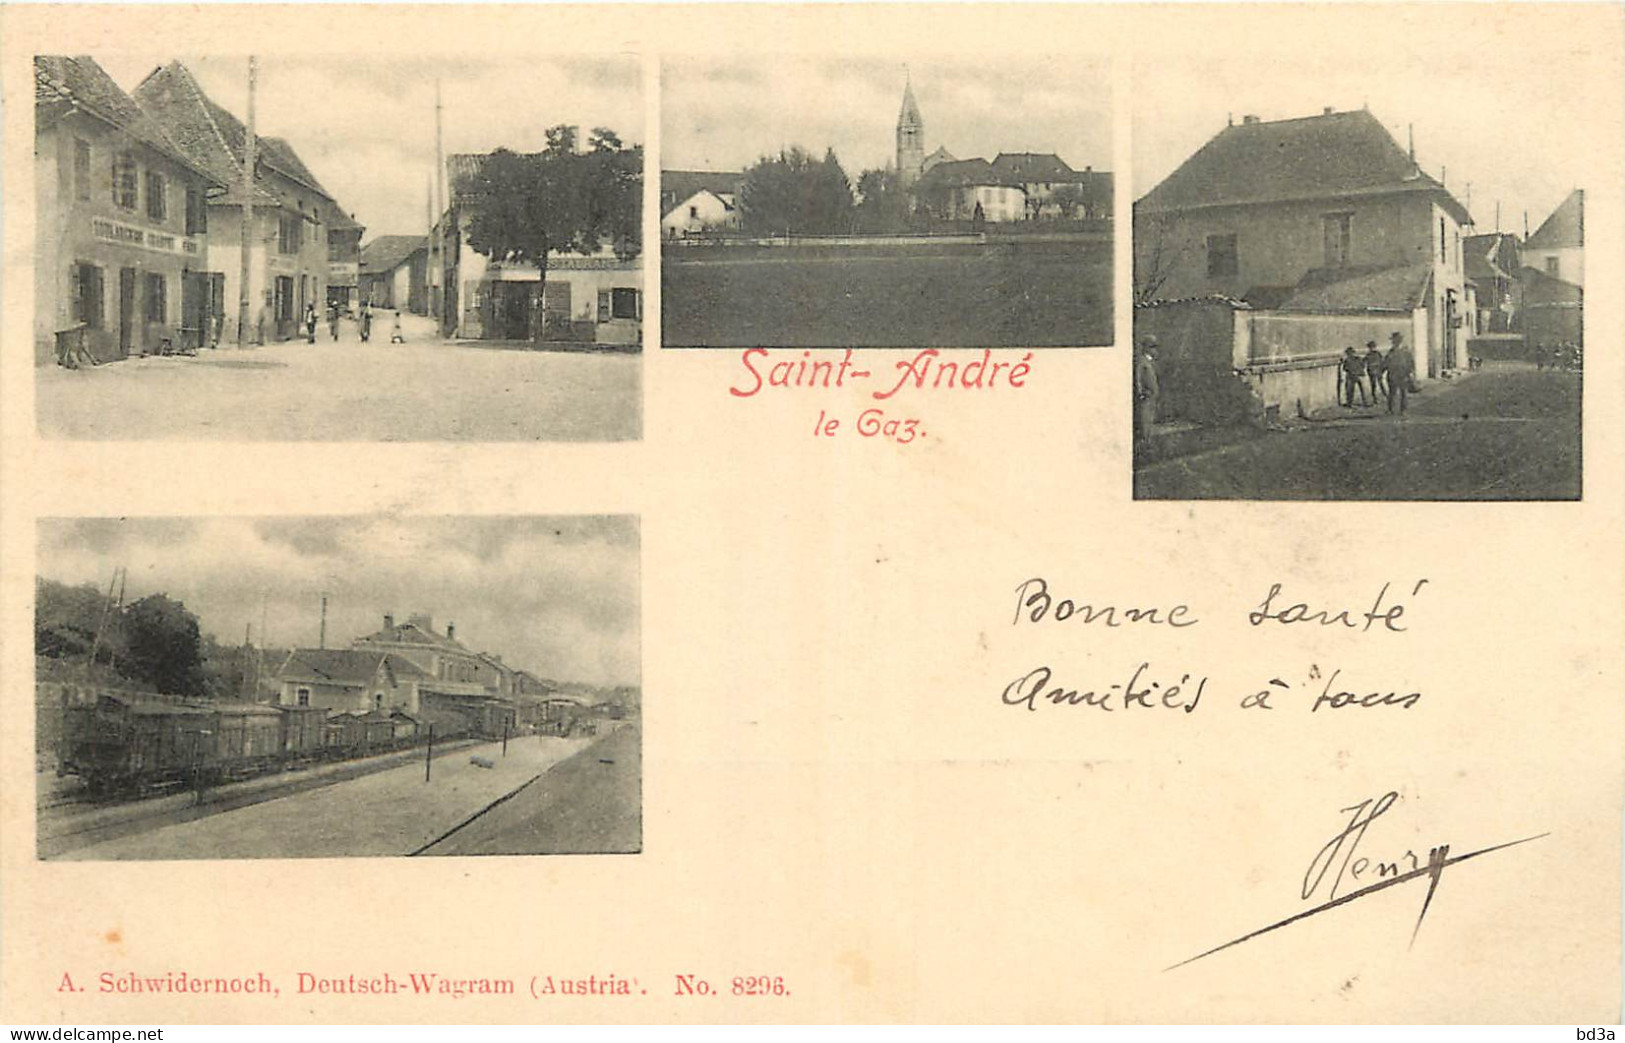 Saint-André
le Gaz.
Bonne Santé
Amitiés à tous
Henry
A. Schwidernoch, Deutsch-Wagram (Austria). No. 8296.
www.delcampe.net
bd3a